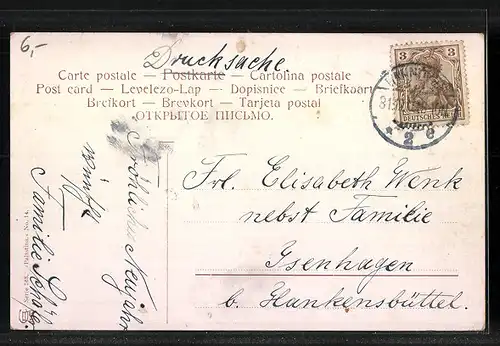 6,-
Drucksache
Carte postale — Postkarte — Cartolina postale
Post card — Levelezo-Lap — Dopisnice — Briefkaart
Brefkort — Brevkort — Tarjeta postal
ОТКРЫТОЕ ПИСЬМО.
3
DEUTSCHES
* 2 e
Frl. Elisabeth Wenk
nebst Familie
Isenhagen
b. Hankensbüttel.
Fröhliches Neujahr
wünscht
Familie
Serie No. 14.